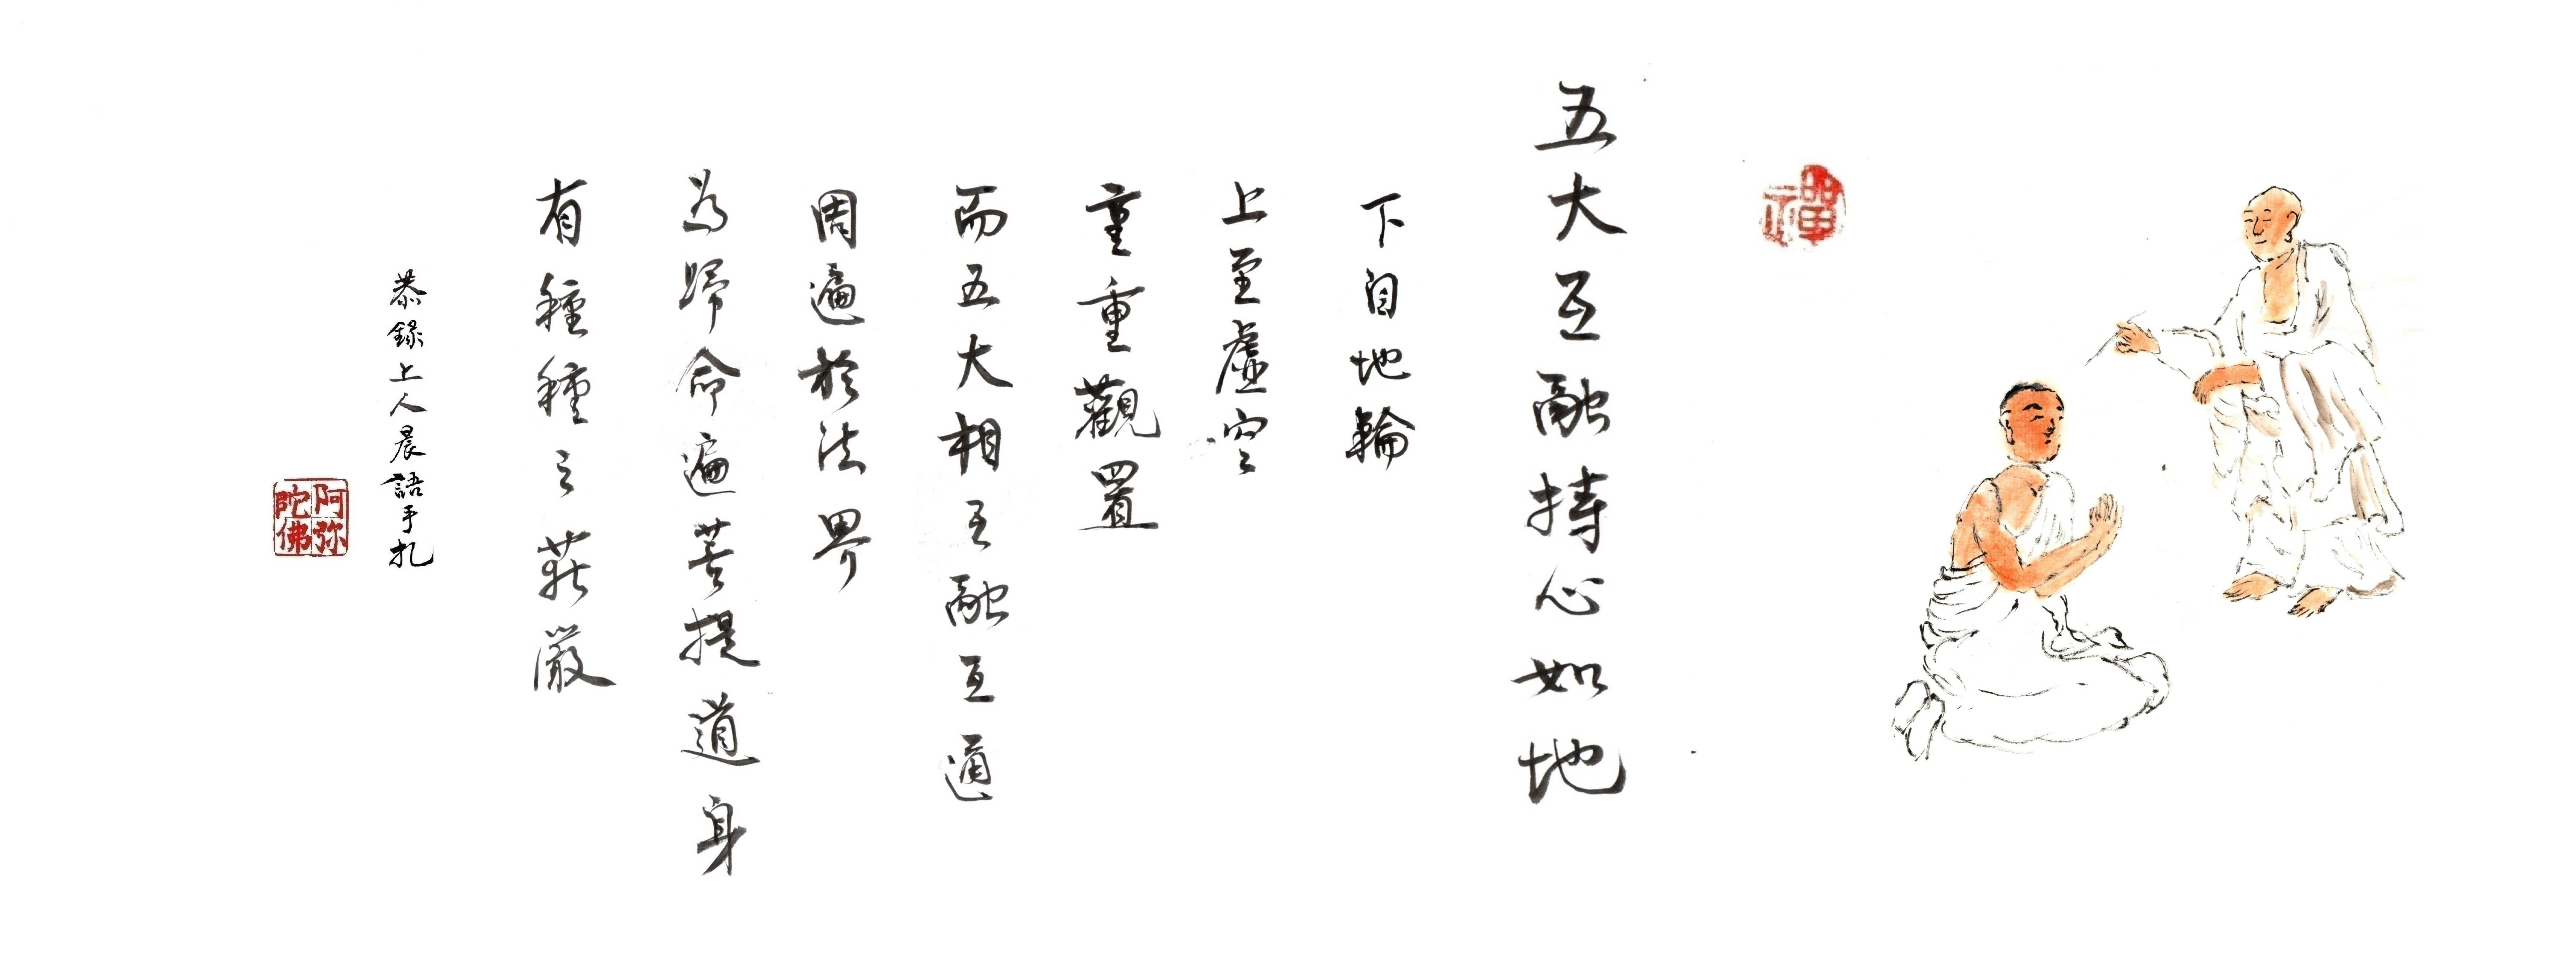 禪
五大互融持心如地
下自地輪
上至虛空
重重觀置
而五大相互融互通
周遍於法界
為歸命遍菩提道身
有種種之莊嚴
恭錄上人晨語手札
阿弥陀佛